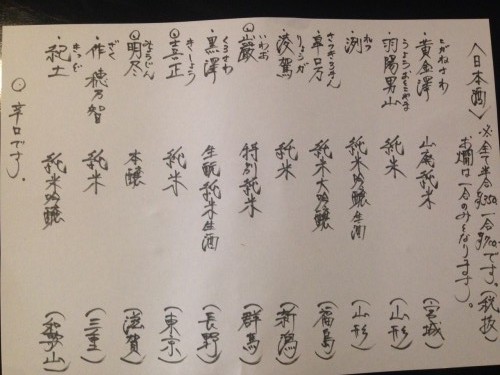 〈日本酒〉 ※全て半合¥350 一合¥700です。(税抜)
お燗は一合のみとなります。
・黄金澤 こがねさわ 山廃純米 (宮城)
・羽陽男山 うようおとこやま 純米 (山形)
・洌 れつ 純米吟醸生酒 (山形)
・皐月万 純米大吟醸 (福島)
・凌駕 りょうが 純米 (新潟)
◎巌 いわお 特別純米 (群馬)
・黒澤 くろさわ 生酛純米生酒 (長野)
◎喜正 きしょう 純米 (東京)
◎明尽 本醸 (滋賀)
・作 穂乃智 ざく 純米 (三重)
・紀土 きっど 純米吟醸 (和歌山)
◎辛口です。